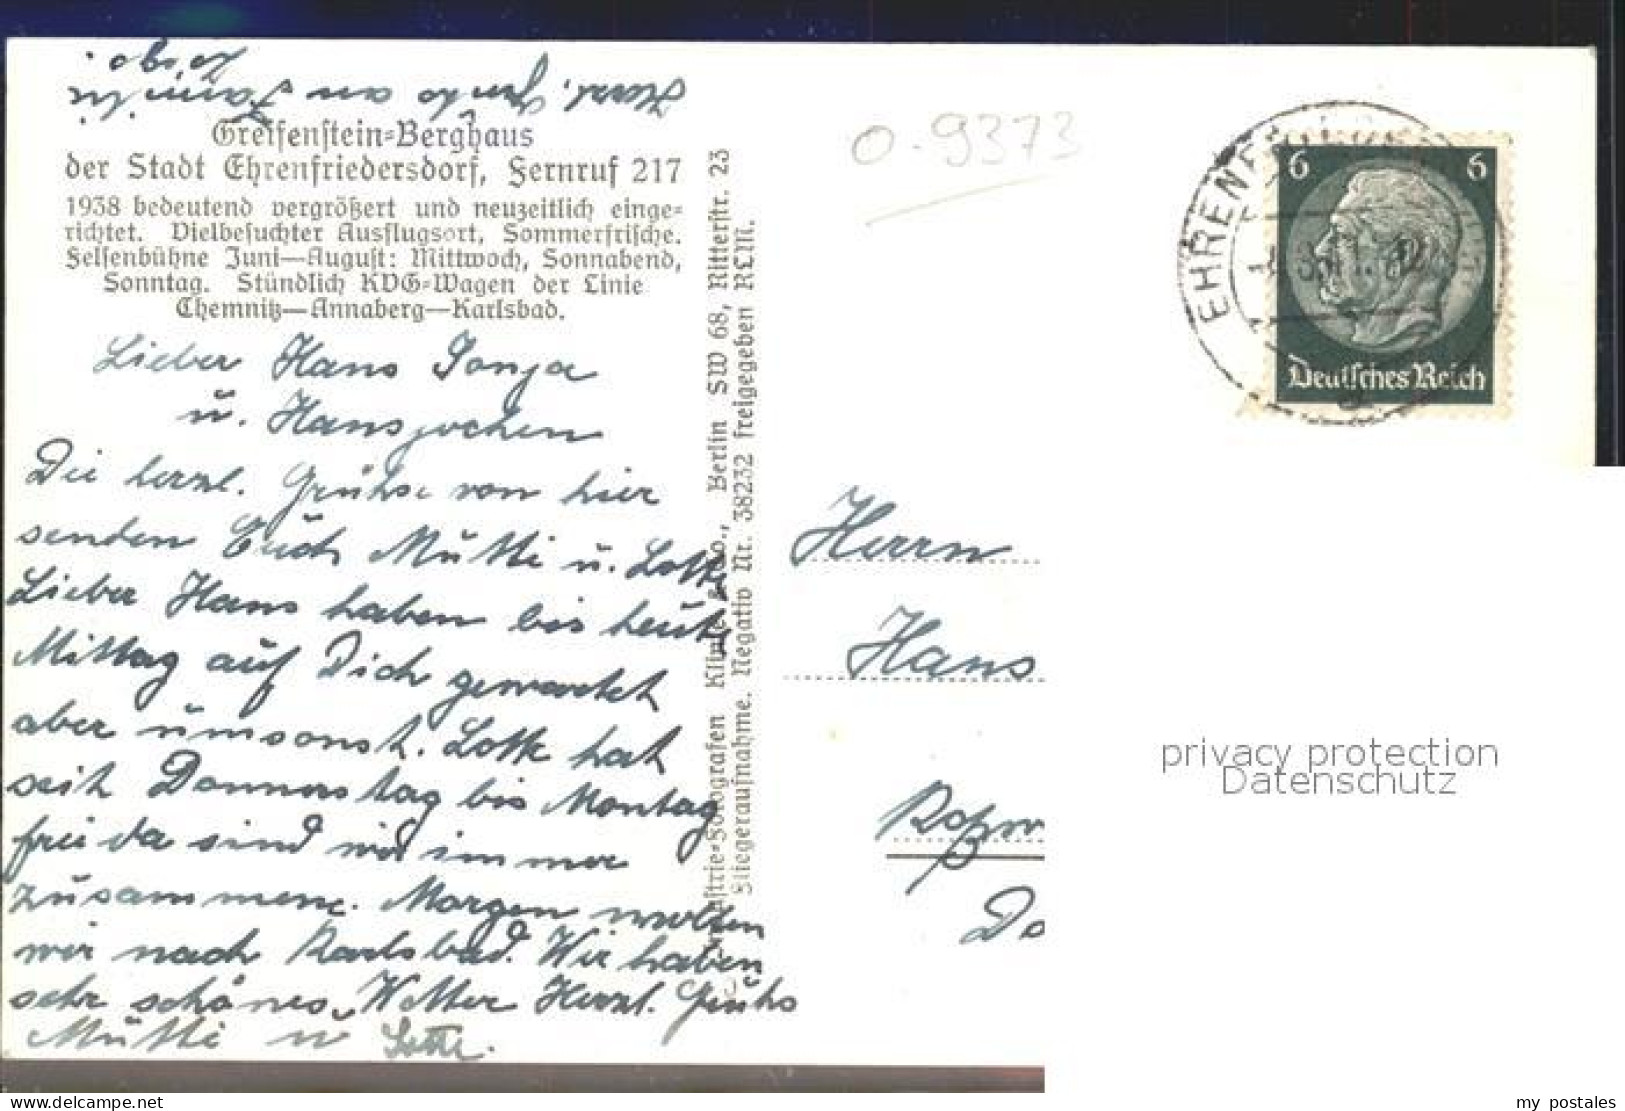 Herzl. an Familie
Greifenstein-Berghaus
der Stadt Ehrenfriedersdorf, Fernruf 217
1938 bedeutend vergrößert und neuzeitlich einge-
richtet. Vielbesuchter Ausflugsort, Sommerfrische.
Felsenbühne Juni—August: Mittwoch, Sonnabend,
Sonntag. Stündlich KVG-Wagen der Linie
Chemnitz—Annaberg—Karlsbad.
Lieber Hans Sonja
u. Hansjochen
Die herzl. Grühse von hier
senden Euch Mutti u. Lotte
Lieber Hans haben bis heute
Mittag auf Dich gewartet
aber umsonst. Lotte hat
seit Donnerstag bis Montag
frei da sind wir immer
zusammen. Morgen wollen
wir nach Karlsbad. Wir haben
sehr schönes Wetter Herzl. Grühs
Mutti u Lotte.
Industrie-Fotografen Klinke & Co., Berlin SW 68, Ritterstr. 23
Fliegeraufnahme. Negativ Nr. 38232 freigegeben RLM.
0.9373
6 6
Deutsches Reich
Herrn
Hans
privacy protection
Datenschutz
www.delcampe.net
my_postales